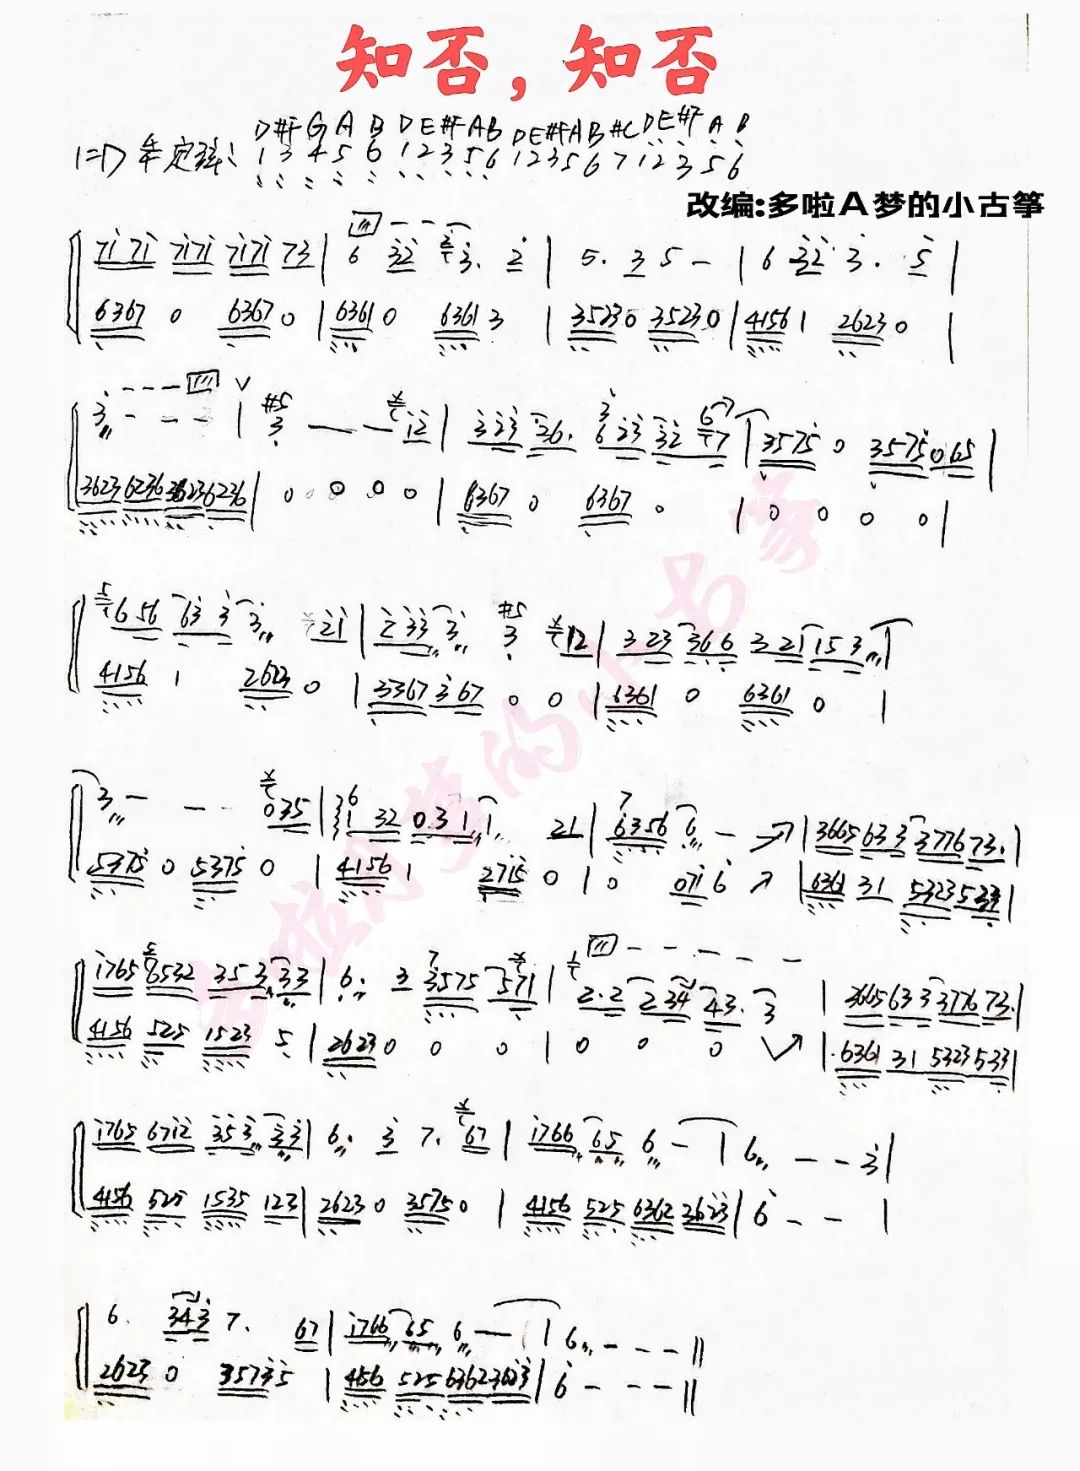 知否，知否
D #F G A B D E #F A B D E #F A B #C D E #F A B
1=D 筝定弦： 1 3 4 5 6 1 2 3 5 6 1 2 3 5 6 7 1 2 3 5 6
改编:多啦A梦的小古筝
7171 7171 7171 73 | 6 32 3. 2 | 5. 3 5 - | 6 32 3. 5 |
6367 0 6367 0 | 6361 0 6361 3 | 3523 0 3523 0 | 4156 1 2623 0 |
3 - - - | 3 - - 12 | 323 26. 623 32 7 | 3575 0 3575 065 |
3623 6236 3623 6236 | 0 0 0 0 | 6367 0 6367 0 | 0 0 0 0 |
656 63 3 3 21 | 2 33 3 #5 3 12 | 3 23 366 3 21 15 3 |
4156 1 2623 0 | 3367 367 0 0 | 6361 0 6361 0 |
3 - - - 035 | 1 32 031 1 21 | 6356 6 - | 3665 633 3776 73. |
5375 0 5375 0 | 4156 1 2715 0 | 0 071 6 | 6361 31 5323 533 |
1765 6532 353 33 | 6. 3 3575 571 | 2.2 234 43. 3 | 3665 633 3776 73. |
4156 525 1523 5 | 2623 0 0 0 | 0 0 0 | 6361 31 5323 533 |
1765 6712 353 33 | 6. 3 7. 67 | 1766 65 6 - | 6 - - 3 |
4156 525 1535 123 | 2623 0 3575 0 | 4156 525 6362 3623 | 6 - - |
6. 343 7. 67 | 1766 65 6 - | 6 - - - ||
2623 0 35735 | 456 525 6362 3623 | 6 - - - ||
多啦A梦的小古筝